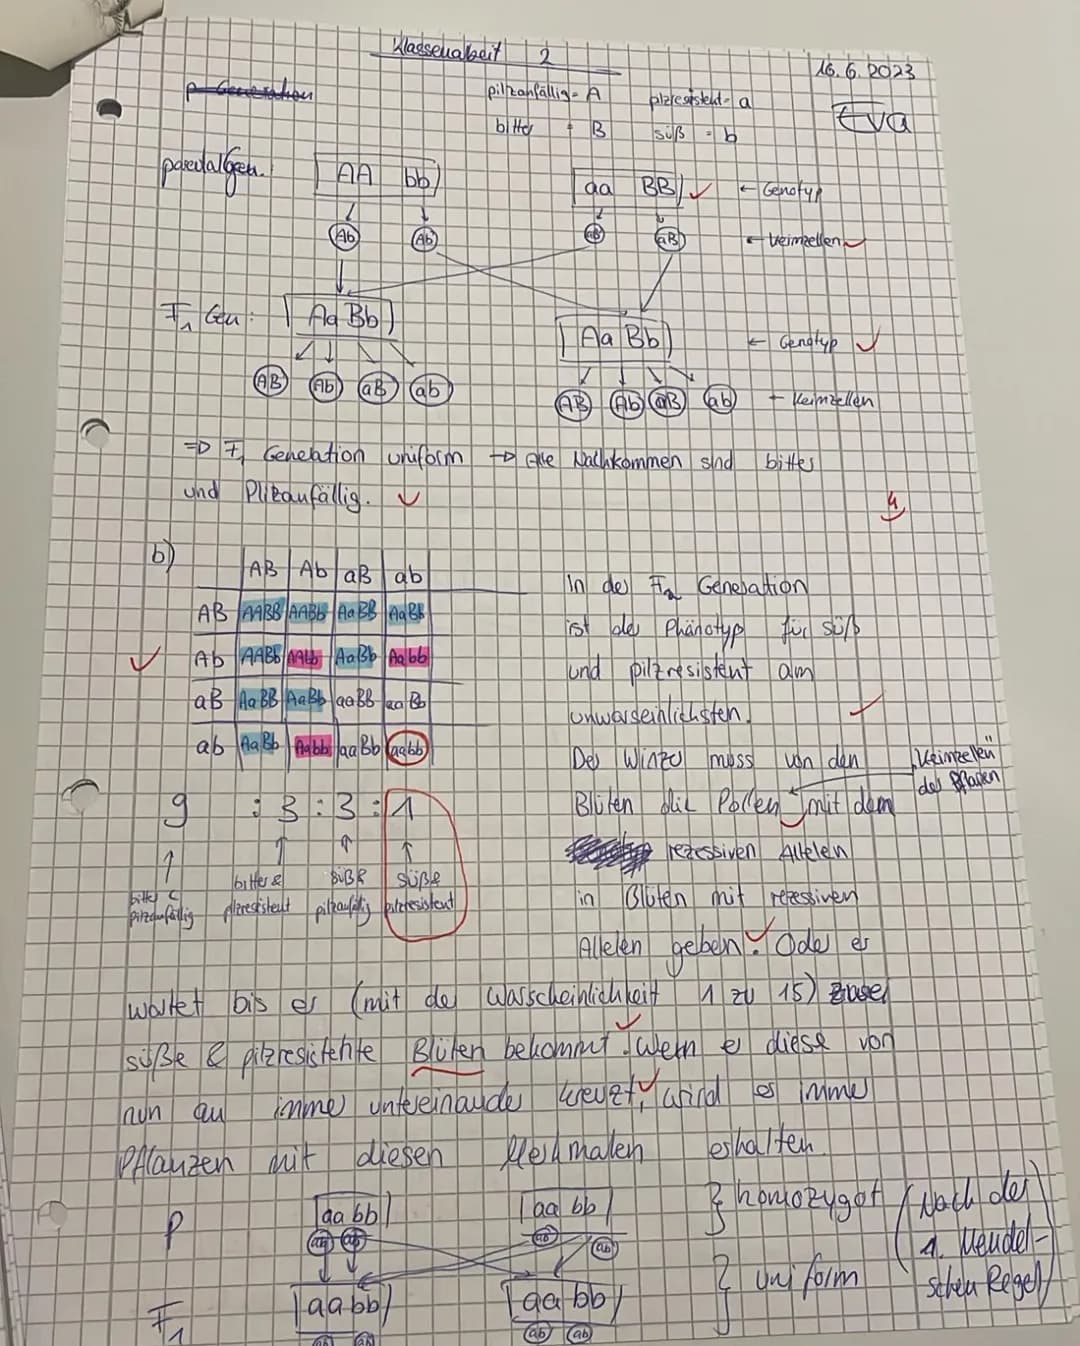 Klassenabeit 2
16.6.2023
p Generation
pilzanfällig = A pizresistent = a
Eva
bitter = B süß = b
parentalgen. AA bb aa BB ← Genotyp
Ab Ab aB aB ← Keimzellen
F1 Gen: Aa Bb Aa Bb ← Genotyp
AB Ab aB ab AB Ab aB ab ← Keimzellen
=> F1 Generation uniform → Alle Nachkommen sind bitter
und Pilzanfällig.
4
b)
AB Ab aB ab
AB AABB AABb AaBB AaBb
Ab AABb AAbb AaBb Aabb
aB AaBB AaBb aaBB aaBb
ab AaBb Aabb aaBb aabb
9 : 3 : 3 : 1
bitter & pilzanfällig
bitter & pilzresistent
süß & pilzanfällig
süß & pilzresistent
In der F2 Generation
ist der Phänotyp für süß
und pilzresistent am
unwarseinlichsten.
Der Winzer muss von den
Blüten die Pollen mit dem
"Keimzellen"
der Pflanzen
rezessiven Allelen
in Blüten mit rezessiven
Allelen geben. Oder er
wartet bis er (mit der Warscheinlichkeit 1 zu 15)
süße & pilzresistente Blüten bekommt. Wenn er diese von
nun an immer untereinander kreuzt, wird er immer
Pflanzen mit diesen Merkmalen erhalten.
P aa bb aa bb } homozygot (Nach der
ab ab ab ab 1. Mendel-
F1 aa bb aa bb } uniform schen Regel)
ab ab ab ab